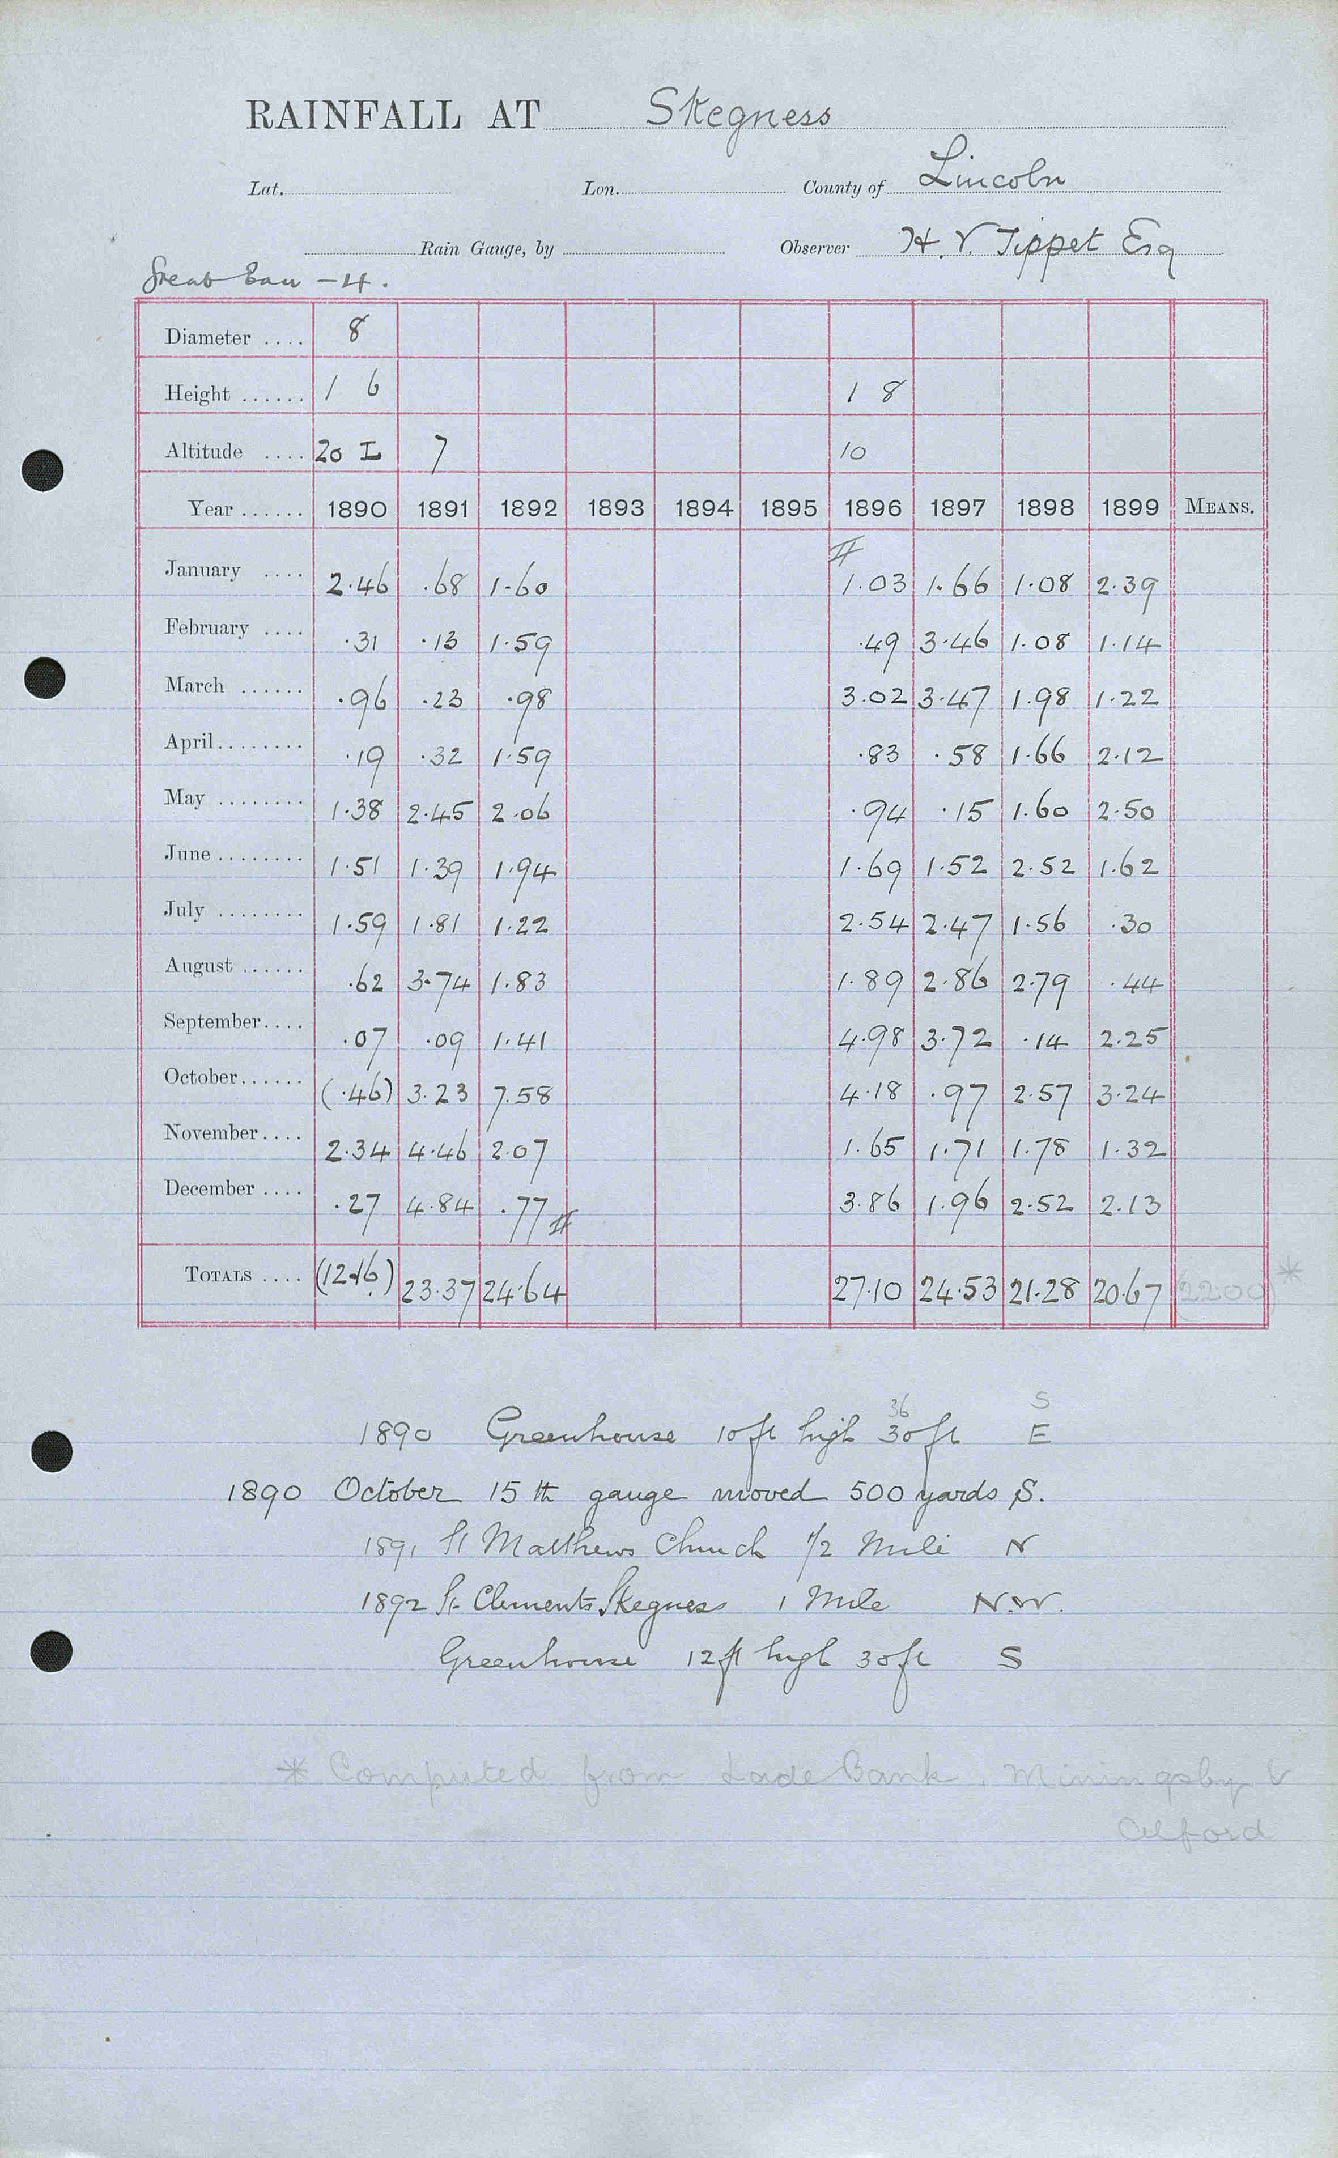 RAINFALL AT Skegness
Lat. Lon. County of Lincoln
Rain Gauge, by Observer H. V. Tippet Esq
Great Eau - 4.
Diameter .... 8
Height ...... 1 6 1 8
Altitude .... 20 I 7 10
Year ...... 1890 1891 1892 1893 1894 1895 1896 1897 1898 1899 MEANS.
January .... 2.46 .68 1.60 1.03 1.66 1.08 2.39
February .... .31 .13 1.59 .49 3.46 1.08 1.14
March ...... .96 .23 .98 3.02 3.47 1.98 1.22
April........ .19 .32 1.59 .83 .58 1.66 2.12
May ........ 1.38 2.45 2.06 .94 .15 1.60 2.50
June ........ 1.51 1.39 1.94 1.69 1.52 2.52 1.62
July ........ 1.59 1.81 1.22 2.54 2.47 1.56 .30
August ...... .62 3.74 1.83 1.89 2.86 2.79 .44
September.... .07 .09 1.41 4.98 3.72 .14 2.25
October...... (.46) 3.23 7.58 4.18 .97 2.57 3.24
November.... 2.34 4.46 2.07 1.65 1.71 1.78 1.32
December .... .27 4.84 .77 3.86 1.96 2.52 2.13
TOTALS .... (12.16) 23.37 24.64 27.10 24.53 21.28 20.67 (2200) *
36 S
1890 Greenhouse 10ft high 30ft E
1890 October 15th gauge moved 500 yards S.
1891 St Matthews Church 1/2 Mile N
1892 St. Clements Skegness 1 Mile N.W.
Greenhouse 12ft high 30ft S
* Computed from Lade Bank, Miningsby &
Alford